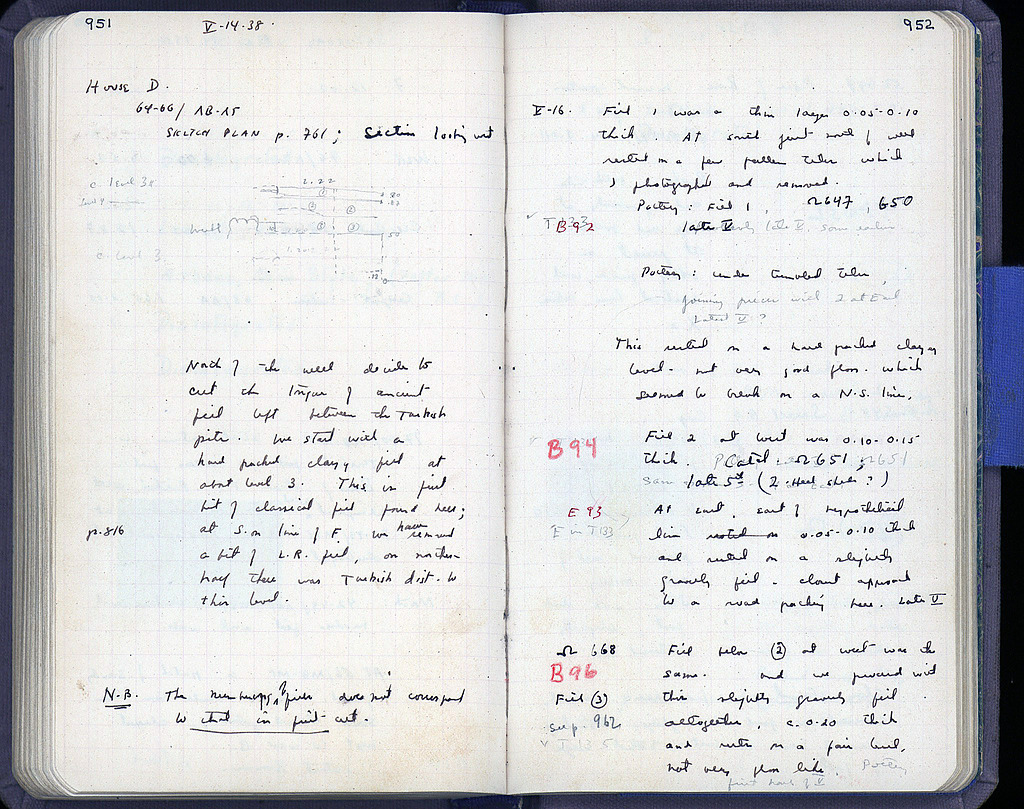 951
V-14-38
House D.
64-66/ AB-AΓ
SKETCH PLAN p. 761; Section looking west
c. level 3
2.22
wall
c. level 3
North of the wall decide to
cut the tongue of ancient
fill left between the Turkish
pits. We start with a
hard packed clayey fill at
about level 3. This is first
bit of classical fill found here;
p. 816
at S. on line of F. we have removed
a bit of L.R. fill, on northern
half there was Turkish dist. to
this level.
N.B. The numbering of fills does not correspond
to that in first cut.
952
V-16. Fill 1 was a thin layer 0.05-0.10
thick. At south just north of wall
rested on a few fallen tiles which
I photographed and removed.
Pottery: Fill 1, Ω647, 650
B92 late V
Pottery: under tumbled tiles
joining pieces with 2 at East
Latest V?
This rested on a hard packed clayey
level - not very good floor - which
seemed to break on a N.S. line.
B94
Fill 2 at west was 0.10-0.15
thick. Catal. Ω651;
late 5th (2
E 93 At east, east of hypothetical
E in T133 line rested on 0.05-0.10 thick
and rested on a slightly
gravely fill - almost approach
to a road packing here. Late V
Ω 668 Fill below (2) at west was the
B96 same. and we proceed with
Fill (3) this slightly gravely fill
sup. 962 altogether, c. 0.20 thick
and rests on a fair level,
not very floor like. Pottery
first half of V